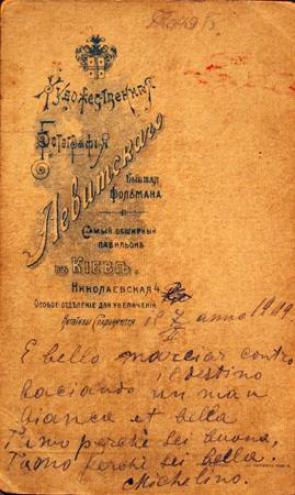 Художественная
Фотографія
Левитскаго
бывшая
Фольмана
Самый обширный
павильонъ
въ Кіевѣ,
Николаевская 4.
Особое отдѣленіе для увеличеній
Негативы сохраняются
anno 1909
E bello marciar contro
il destino
baciando un man
bianca et bella
T'amo perchè sei buona,
T'amo perchè sei bella.
Michelino.